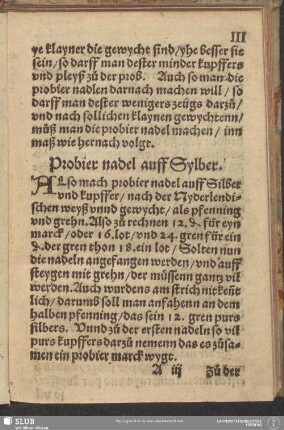 III
ye klayner die gewycht sind/yhe besser sie
sein/so darff man dester minder kupffers
vnd pleyß zů der prob. Auch so man die
probier nadlen darnach machen will/so
darff man dester wenigers zeügs darzů/
vnd nach sollichen klaynen gewychtenn/
můß man die probier nadel machen/inn
maß wie hernach volgt.
Probier nadel auff Sylber.
ALso mach probier nadel auff Silber
vnd kupffer/nach der Nyderlendi-
schen weyß vnnd gewycht/als pfenning
vnd grehn. Also zů rechnen 12. d. für eyn
marck/oder 16. lot/vnd 24. gren für ein
d. der gren thon 18. ein lot/Solten nun
die nadeln angefangen werden/vnd auff
steygen mit grehn/der müssenn gantz vil
werden. Auch wurdens am strich nit kent
lich/darumb soll man anfahenn an dem
halben pfenning/das sein 12. gren purs
silbers. Vnnd zů der ersten nadeln so vil
purs kupffers darzů nemenn das es zůsa-
men ein probier marck wygt.
A iij Zů der
SLUB